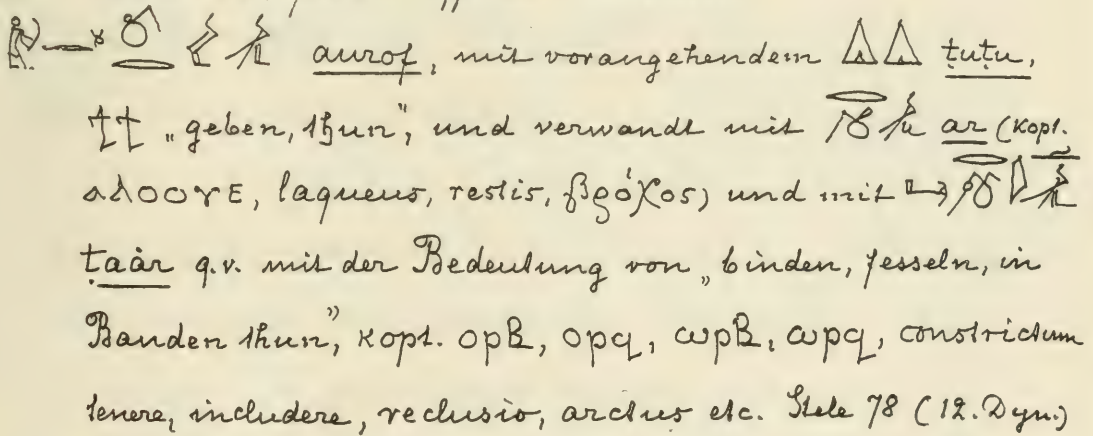 aurof, mit vorangehendem ṭuṭu,
ϯϯ „geben, thun”, und verwandt mit ar (Kopt.
ⲁⲗⲟⲟⲩⲉ, laqueus, restis, βρόχος) und mit
ṭaȧr q.v. mit der Bedeutung von „binden, fesseln, in
Banden thun”, Kopt. ⲟⲣⲃ, ⲟⲣϥ, ⲱⲣⲃ, ⲱⲣϥ, constrictum
tenere, includere, reclusio, arctus etc. Stele 78 (12. Dyn.)